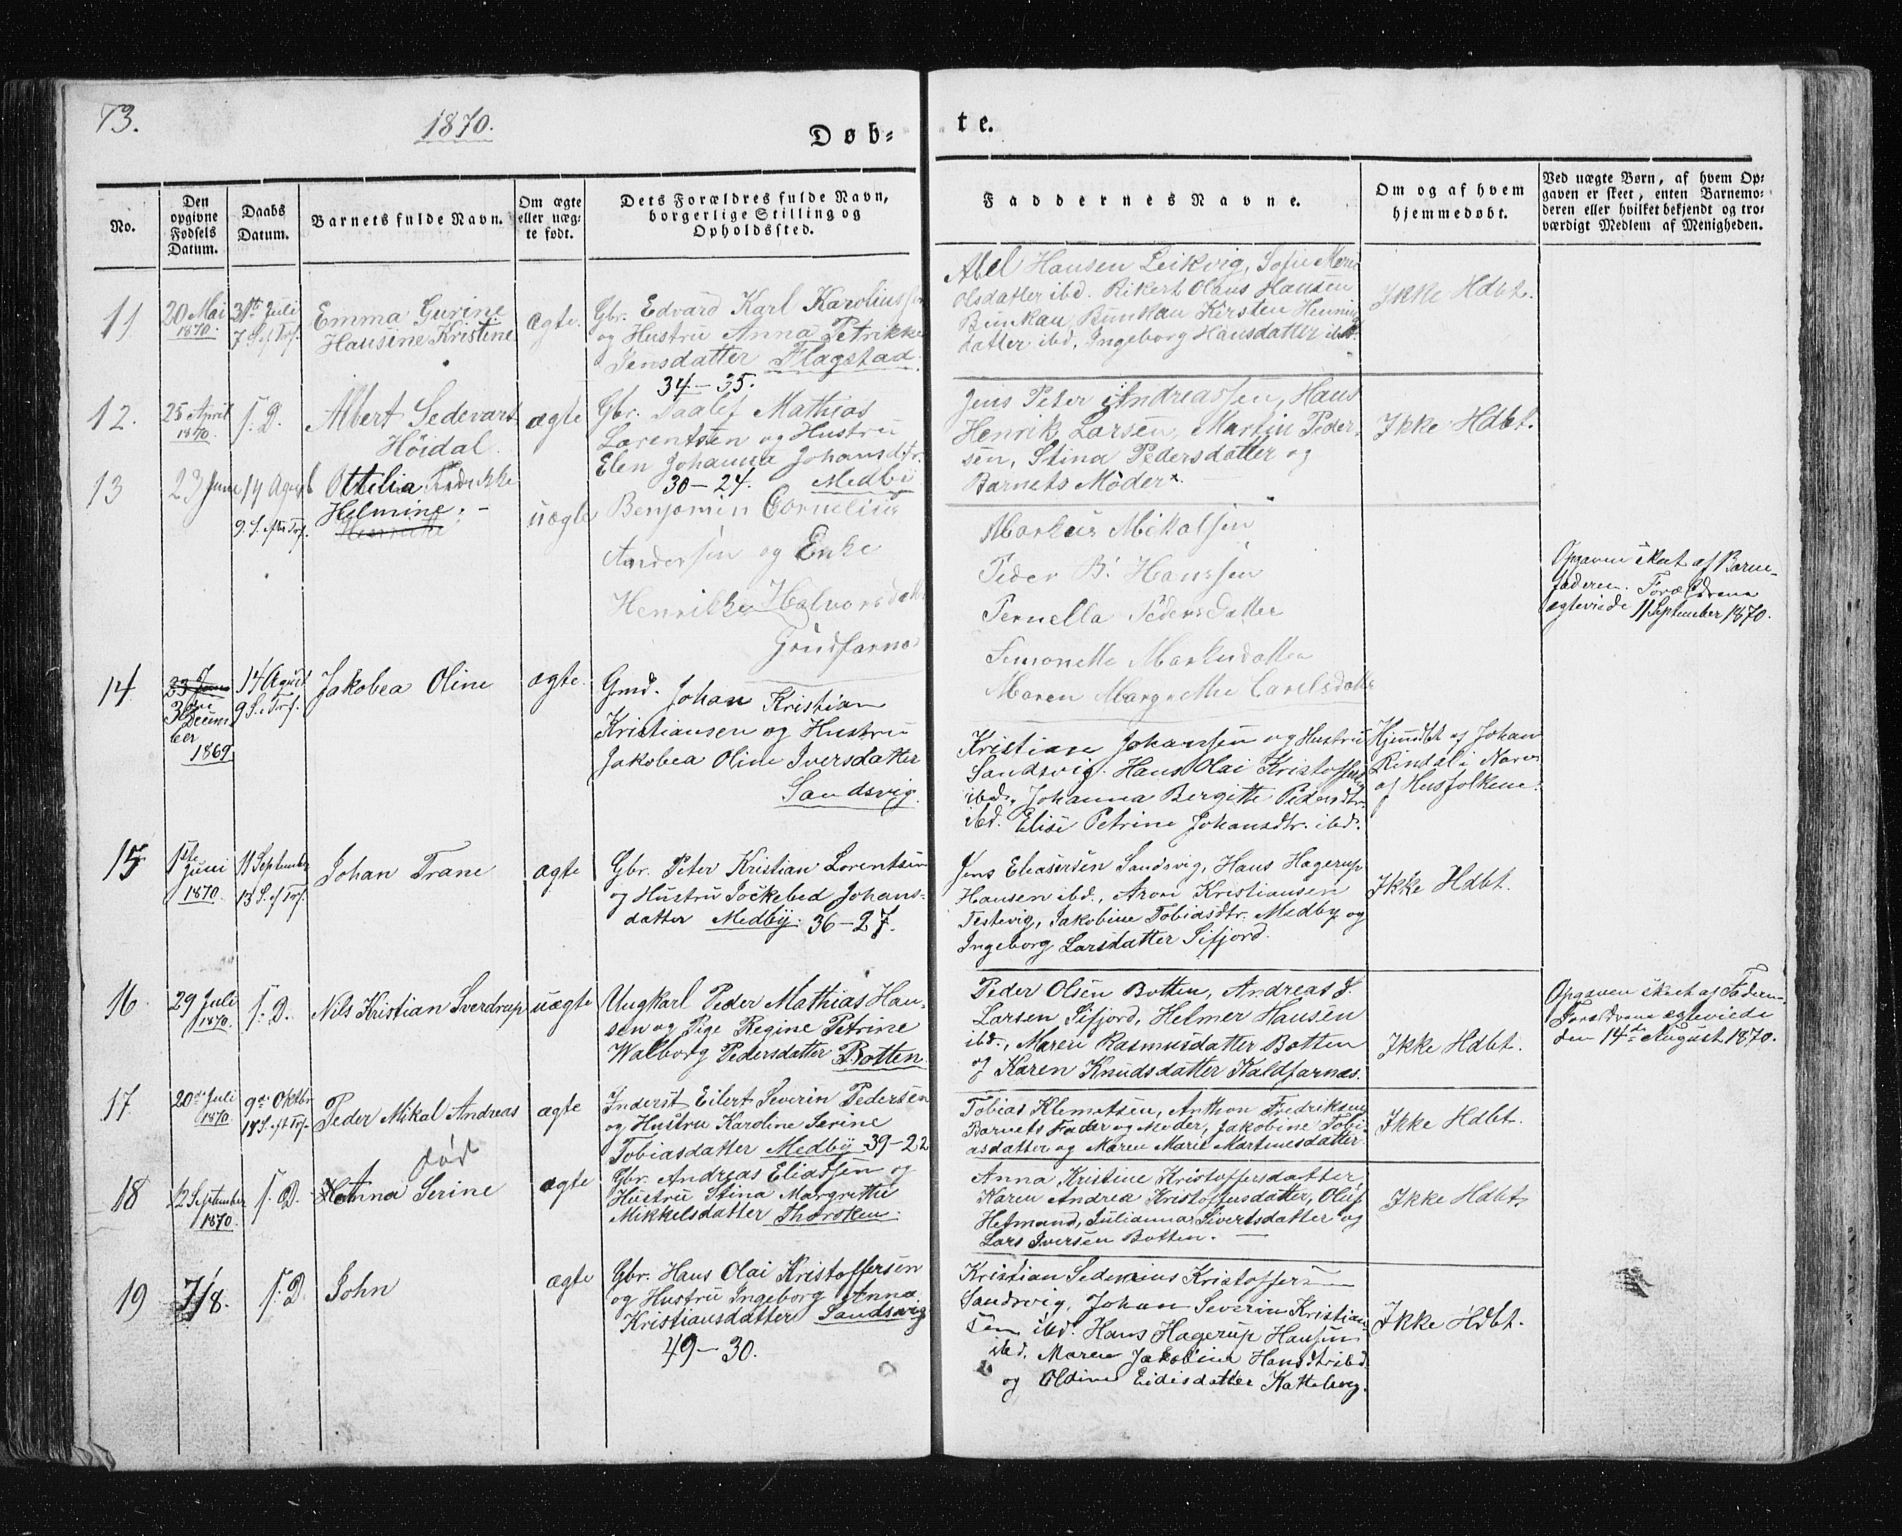 73.
1870.
Døb-
te.
No.
Den opgivne Fødsels Datum.
Daabs Datum.
Barnets fulde Navn.
Om ægte eller uæg-te født.
Dets Forældres fulde Navn, borgerlige Stilling og Opholdssted.
Faddernes Navne.
Om og af hvem hjemmedøbt.
Ved uægte Børn, af hvem Op-
gaven er skeet, enten Barnemo-
deren eller hvilket bekjendt og tro-
værdigt Medlem af Menigheden.
11
20 Mai
1870.
31te Juli
7 S. ef Tref.
Emma Gurine
Hansine Kristine
ægte.
Gbr. Edvard Karl Karoliussen
og Hustru Anna Petrikke
Jensdatter Flagstad.
34-35.
Abel Hansen Leikvig, Sofie Marie
Olsdatter ibd. Rikert Olaus Hansen
Bunkan Bunkan Kirsten Henning
datter ibd, Ingeborg Hansdatter ibd.
Ikke Hdbt.
12.
25 April
1870.
S. D.
Albert Sedevart
Höidal.
ægte
Gbr. Taalef Mathias
Larentsen og Hustru
Elen Johanna Johansdtr.
30-24. Medbÿ
Jens Peter Andreassen, Hans
Henrik Larsen, Martin Peder-
sen, Stina Pedersdatter og
Barnets Moder.
Ikke Hdbt.
13
23 June
14 August
9. S. efter Tref.
Ottilia Fredrikke
Helmine. -
Henrikke
uægte
Benjamin Cornelius
Andersen og Enke
Henrikke Halvorsdatter
Grudfarnes
Markus Mikalsen
Peder B. Hanssen
Pernella Pedersdatter
Simonette Markusdatter
Maren Margrethe Carelsdatter
Opgaven skeet af Barne-
faderen. Forældrene
ægteviede 11 September 1870.
14
23 June
30te
Decem-
ber
1869
14 August
9 S. e. Tref.
Jakobea Oline
ægte.
Gmd. Johan Kristian
Kristiansen og Hustru
Jakobea Oline Iversdatter
Sandsvig.
Kristian Johansen og Hustru
Sandsvig. Hans Olai Kristoffersen
ibd, Johanna Bergitte Pedersdtr.
ibd. Elise Petrine Johansdtr. ibd.
Hjmdbt af Johan
Rindal i Nærv.
af Husfolkene.
15
1ste
Juni
1870.
11 September
13 S. ef Tref.
Johan Trane
ægte
Gbr. Peter Kristian Lorentsen
og Hustru Jockebed Johans-
datter Medbÿ. 36-27.
Jens Eliasersen Sandsvig, Hans Hagerup
Hansen ibd., Aron Kristiansen
Testevig, Jakobine Tobiasdtr. Medby og
Ingeborg Larsdatter Sifjord.
Ikke Hdbt.
16
29 Juli
1870.
S. D.
Nils Kristian Sverdrup
uægte
Ungkarl Peder Mathias Han-
sen og Pige Regine Petrine
Walborg Pedersdatter Botten.
Peder Olsen Botten, Andreas J.
Larsen Sifjord, Helmer Hansen
ibd., Maren Rasmusdatter Botten
og Karen Knudsdatter Kaldfarnes.
Ikke Hdbt.
Opgaven skeet af Faderen.
Forældrene ægteviede
den 14de August 1870.
17
20de Juli
1870.
9de Oktbr.
18 S. eft Tref.
Peder Mikal Andreas
ægte
Inderst Eilert Severin Pedersen
og Hustru Karoline Serine
Tobiasdatter Medbÿ 39-22
Tobias Klemetsen, Anthon Fredriksen
Barnets Fader og Moder, Jakobine Tobi-
asdatter og Maren Marie Martinesdatter
Ikke Hdbt.
18
12 September
1870.
S. D.
død
Anna Serine
ægte
Gbr. Andreas Eliassen og
Hustru Stina Margrethe
Mikkelsdatter Thorsken.
Anna Kristine Kristoffersdatter,
Karen Andrea Kristoffersdatter, Oluf
Hetmand, Julianna Sivertsdatter og
Lars Iversen Botten. -
Ikke Hdbt.
19
7/8.
S. D.
John
ægte
Gbr. Hans Olai Kristoffersen
og Hustru Ingeborg Anna
Kristiansdatter Sandsvig
49-30.
Kristian Sedenius Kristoffersen
Sandsvig, Johan Severin Kristian-
sen ibd. Hans Hagerup Hansen
ibd, Maren Jakobine Hansdtr ibd
og Oldine Eidisdatter Katteberg.
Ikke Hdbt.